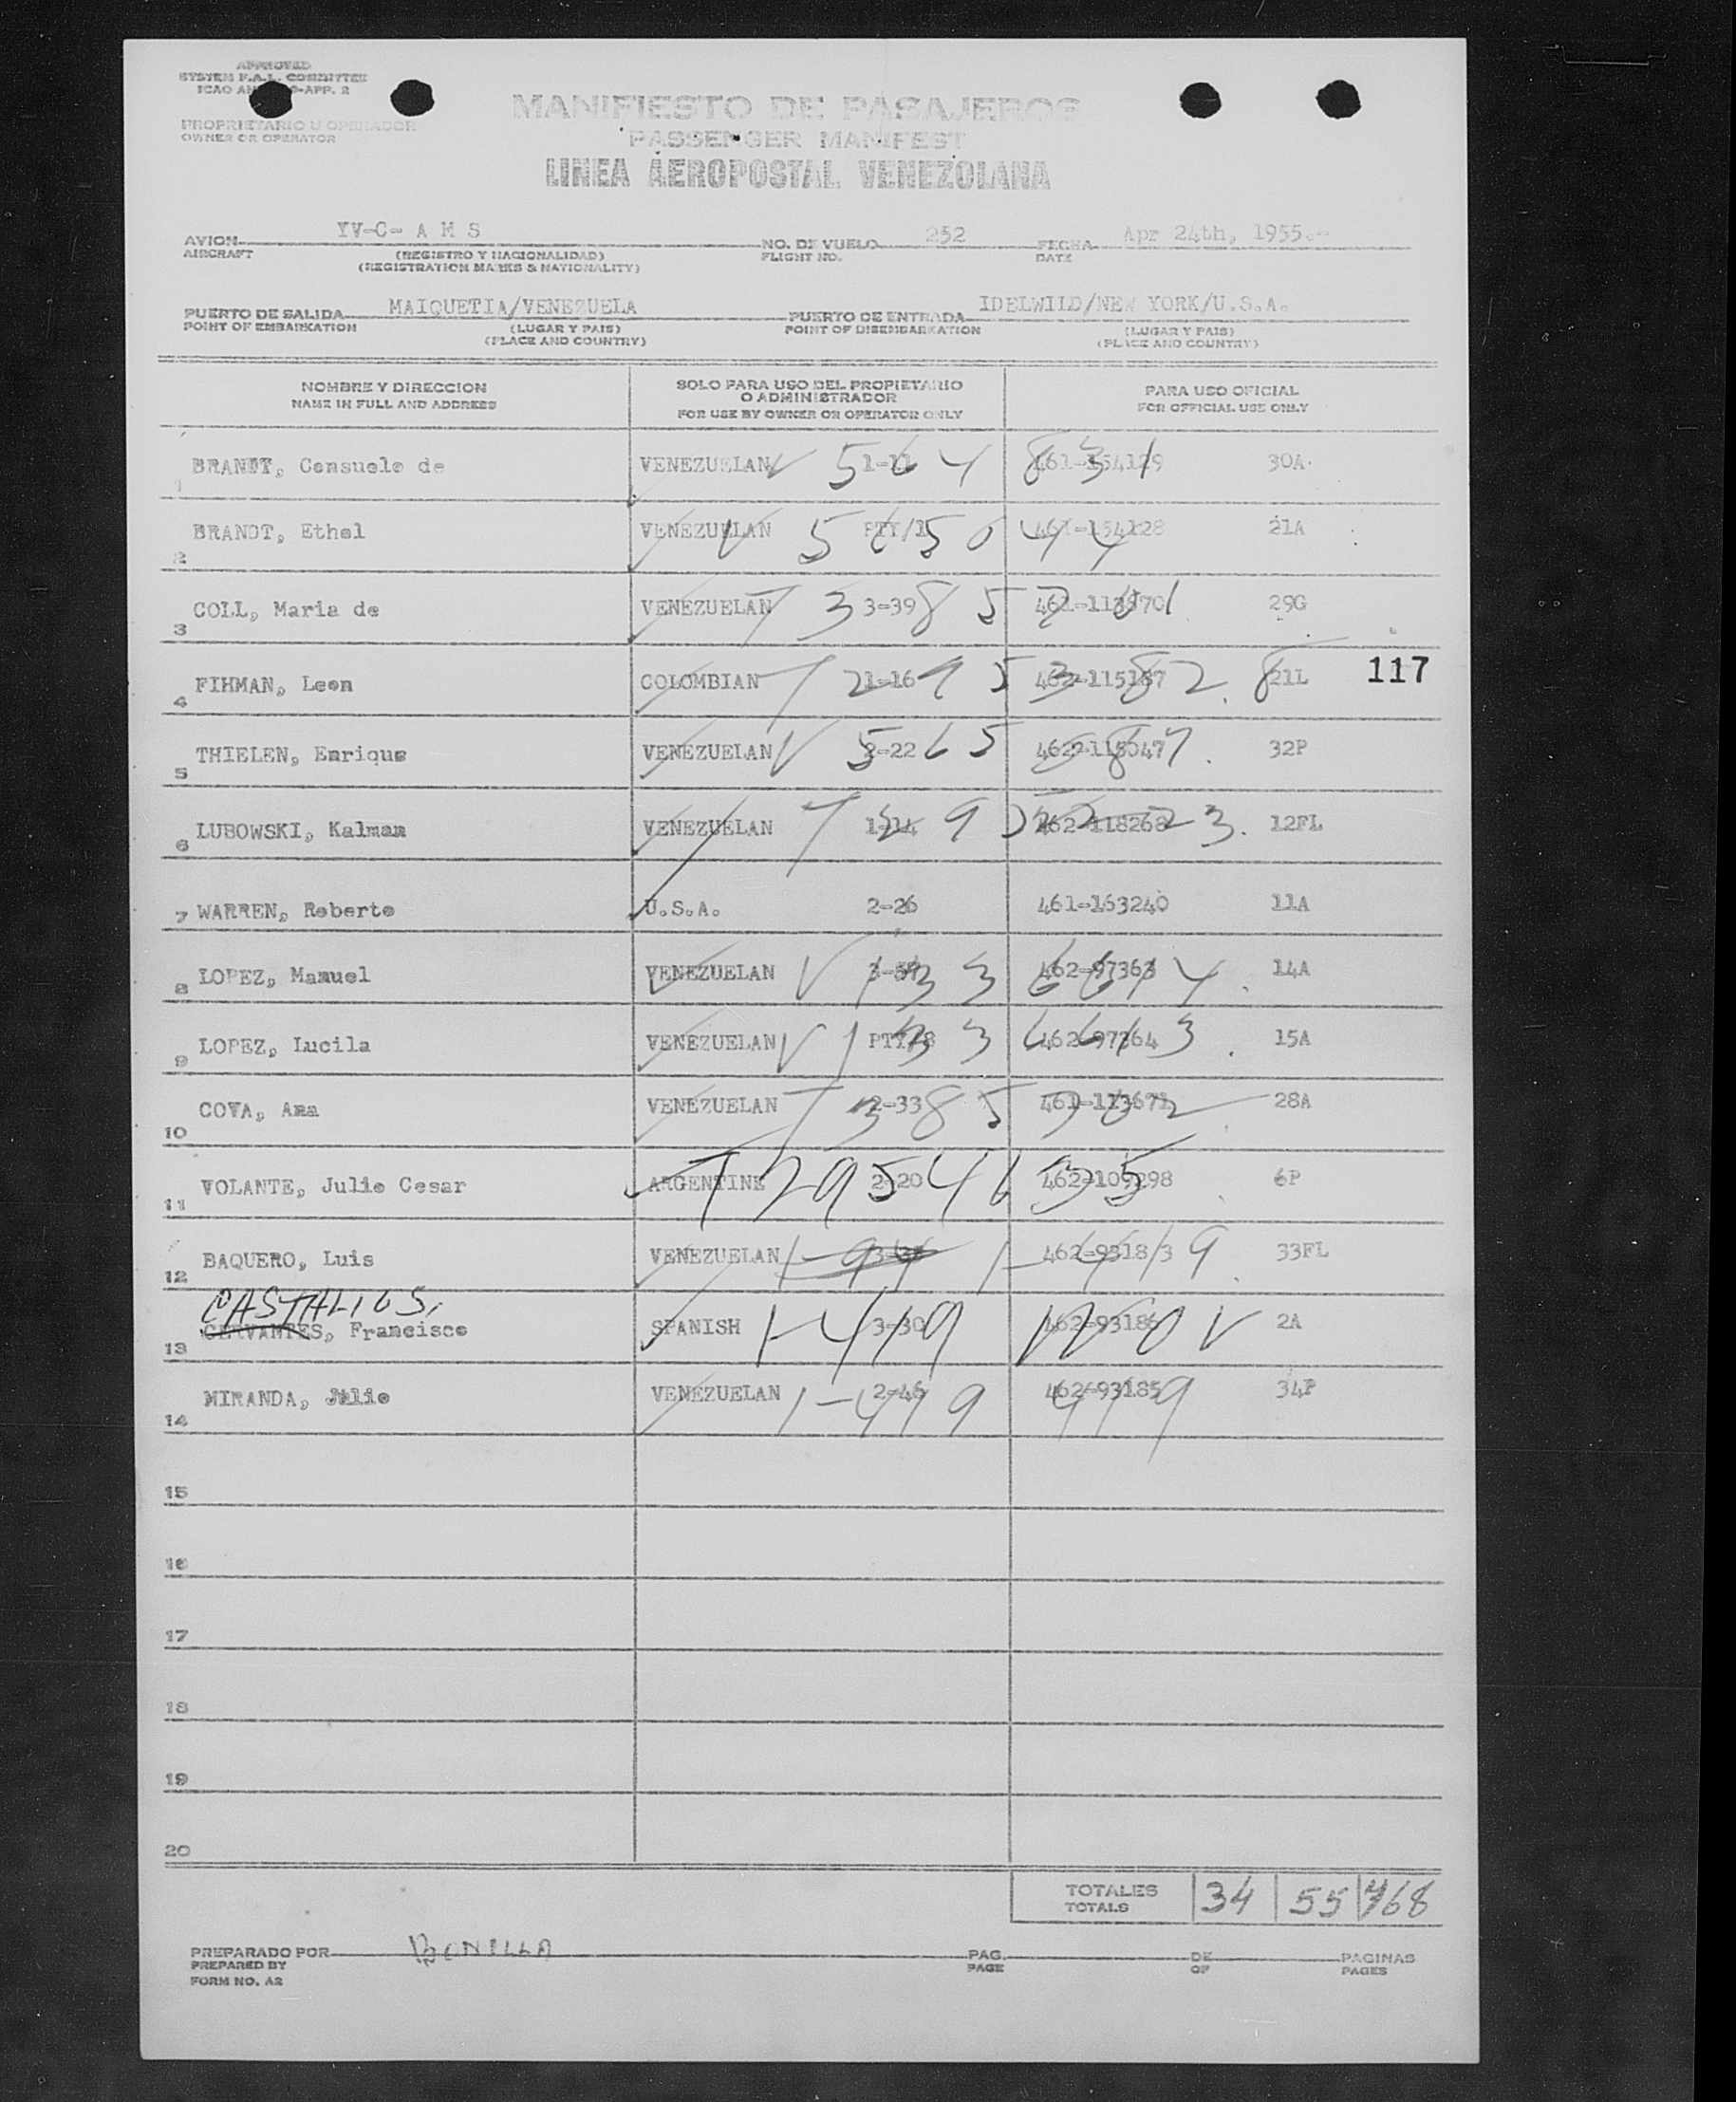 APPROVED
SYSTEM F.A.L. COMMITTEE
ICAO 9-APP. 2
PROPRIETARIO U OPERADOR
OWNER OR OPERATOR
MANIFIESTO DE PASAJEROS
PASSENGER MANIFEST
LINEA AEROPOSTAL VENEZOLANA
AVION YV-C- A M S NO. DE VUELO 252 FECHA Apr 24th, 1955.-
AIRCRAFT (REGISTRO Y NACIONALIDAD) FLIGHT NO. DATE
(REGISTRATION MARKS & NATIONALITY)
PUERTO DE SALIDA MAIQUETIA/VENEZUELA PUERTO DE ENTRADA IDELWILD/NEW YORK/U.S.A.
POINT OF EMBARKATION (LUGAR Y PAIS) POINT OF DISEMBARKATION (LUGAR Y PAIS)
(PLACE AND COUNTRY) (PLACE AND COUNTRY)
NOMBRE Y DIRECCION SOLO PARA USO DEL PROPIETARIO PARA USO OFICIAL
O ADMINISTRADOR
NAME IN FULL AND ADDRESS FOR USE BY OWNER OR OPERATOR ONLY FOR OFFICIAL USE ONLY
1 BRANDT, Consuelo de VENEZUELAN V 5 1-11 6 4 831 30A
2 BRANDT, Ethel VENEZUELAN V 5 6 5 0 4 4 461-154128 21A
3 COLL, Maria de VENEZUELAN T 3 3-39 8 5 29G
4 FIHMAN, Leon COLOMBIAN T 2 1-16 9 5 3 8 2 8 21L 117
5 THIELEN, Enrique VENEZUELAN V 5 2-22 6 5 32P
6 LUBOWSKI, Kalman VENEZUELAN T 2 9 462-118268 23. 12FL
7 WARREN, Roberto U.S.A. 2-26 461-163240 11A
8 LOPEZ, Manuel VENEZUELAN V 1 3 3 462-97363 6 6 1 4 14A
9 LOPEZ, Lucila VENEZUELAN V 1 3 3 462-97364 6 6 1 3 15A
10 COVA, Ana VENEZUELAN T 3 2-33 8 5 461-113671 28A
11 VOLANTE, Julio Cesar ARGENTINE T 2 9 5 4 6 3 5 2-20 462-109298 6P
12 BAQUERO, Luis VENEZUELAN 33FL
CASTALIOS,
13 CERVANTES, Francisco SPANISH 1-419 3-30 462-93186 2A
14 MIRANDA, Julio VENEZUELAN 1-419 2-46 462-93185 419 34P
15
16
17
18
19
20
TOTALES 34 55 468
TOTALS
PREPARADO POR BONILLA PAG. DE PAGINAS
PREPARED BY PAGE OF PAGES
FORM NO. A2